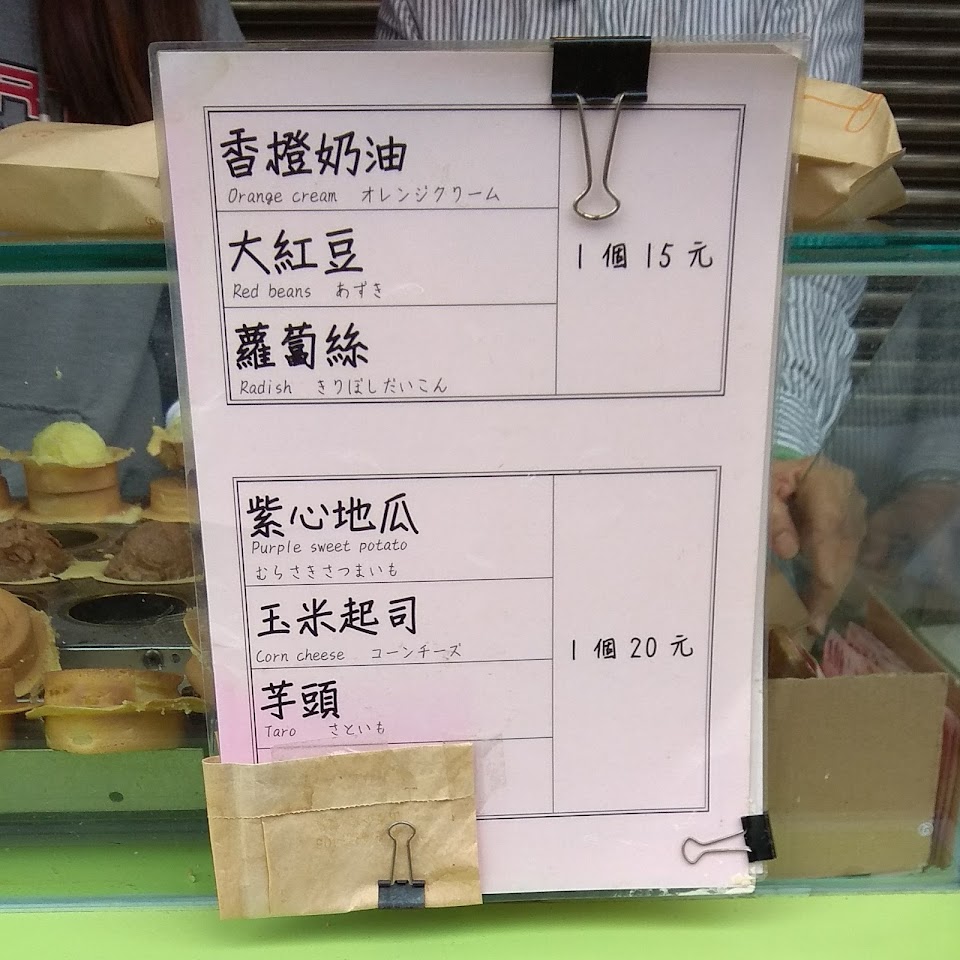 香橙奶油
Orange cream オレンジクリーム
大紅豆
Red beans あずき
蘿蔔絲
Radish きりぼしだいこん
1 個 15 元
紫心地瓜
Purple sweet potato
むらさきさつまいも
玉米起司
Corn cheese コーンチーズ
芋頭
Taro さといも
1 個 20 元